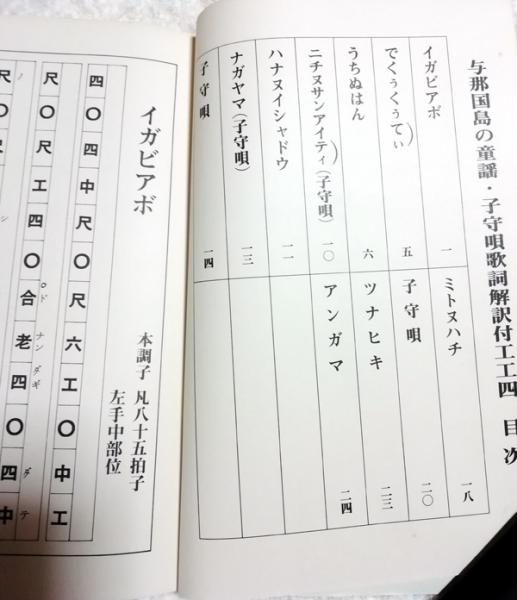 与那国島の童謡・子守唄歌詞解訳付工工四 目次
イガビアボ 一
でくぅくぅてぃ 五
うちぬはん 六
ニチヌサンアイティ(子守唄) 一〇
ハナヌイシャドウ 一一
ナガヤマ(子守唄) 一三
子守唄 一四
ミトヌハチ 一八
子守唄 二〇
ツナヒキ 二三
アンガマ 二四
イガビアボ
本調子 凡八十五拍子
左手中部位
四〇四中尺〇尺六工〇中工
尺〇尺工四〇合老四〇四中
ド ナン ダギ ダ テ